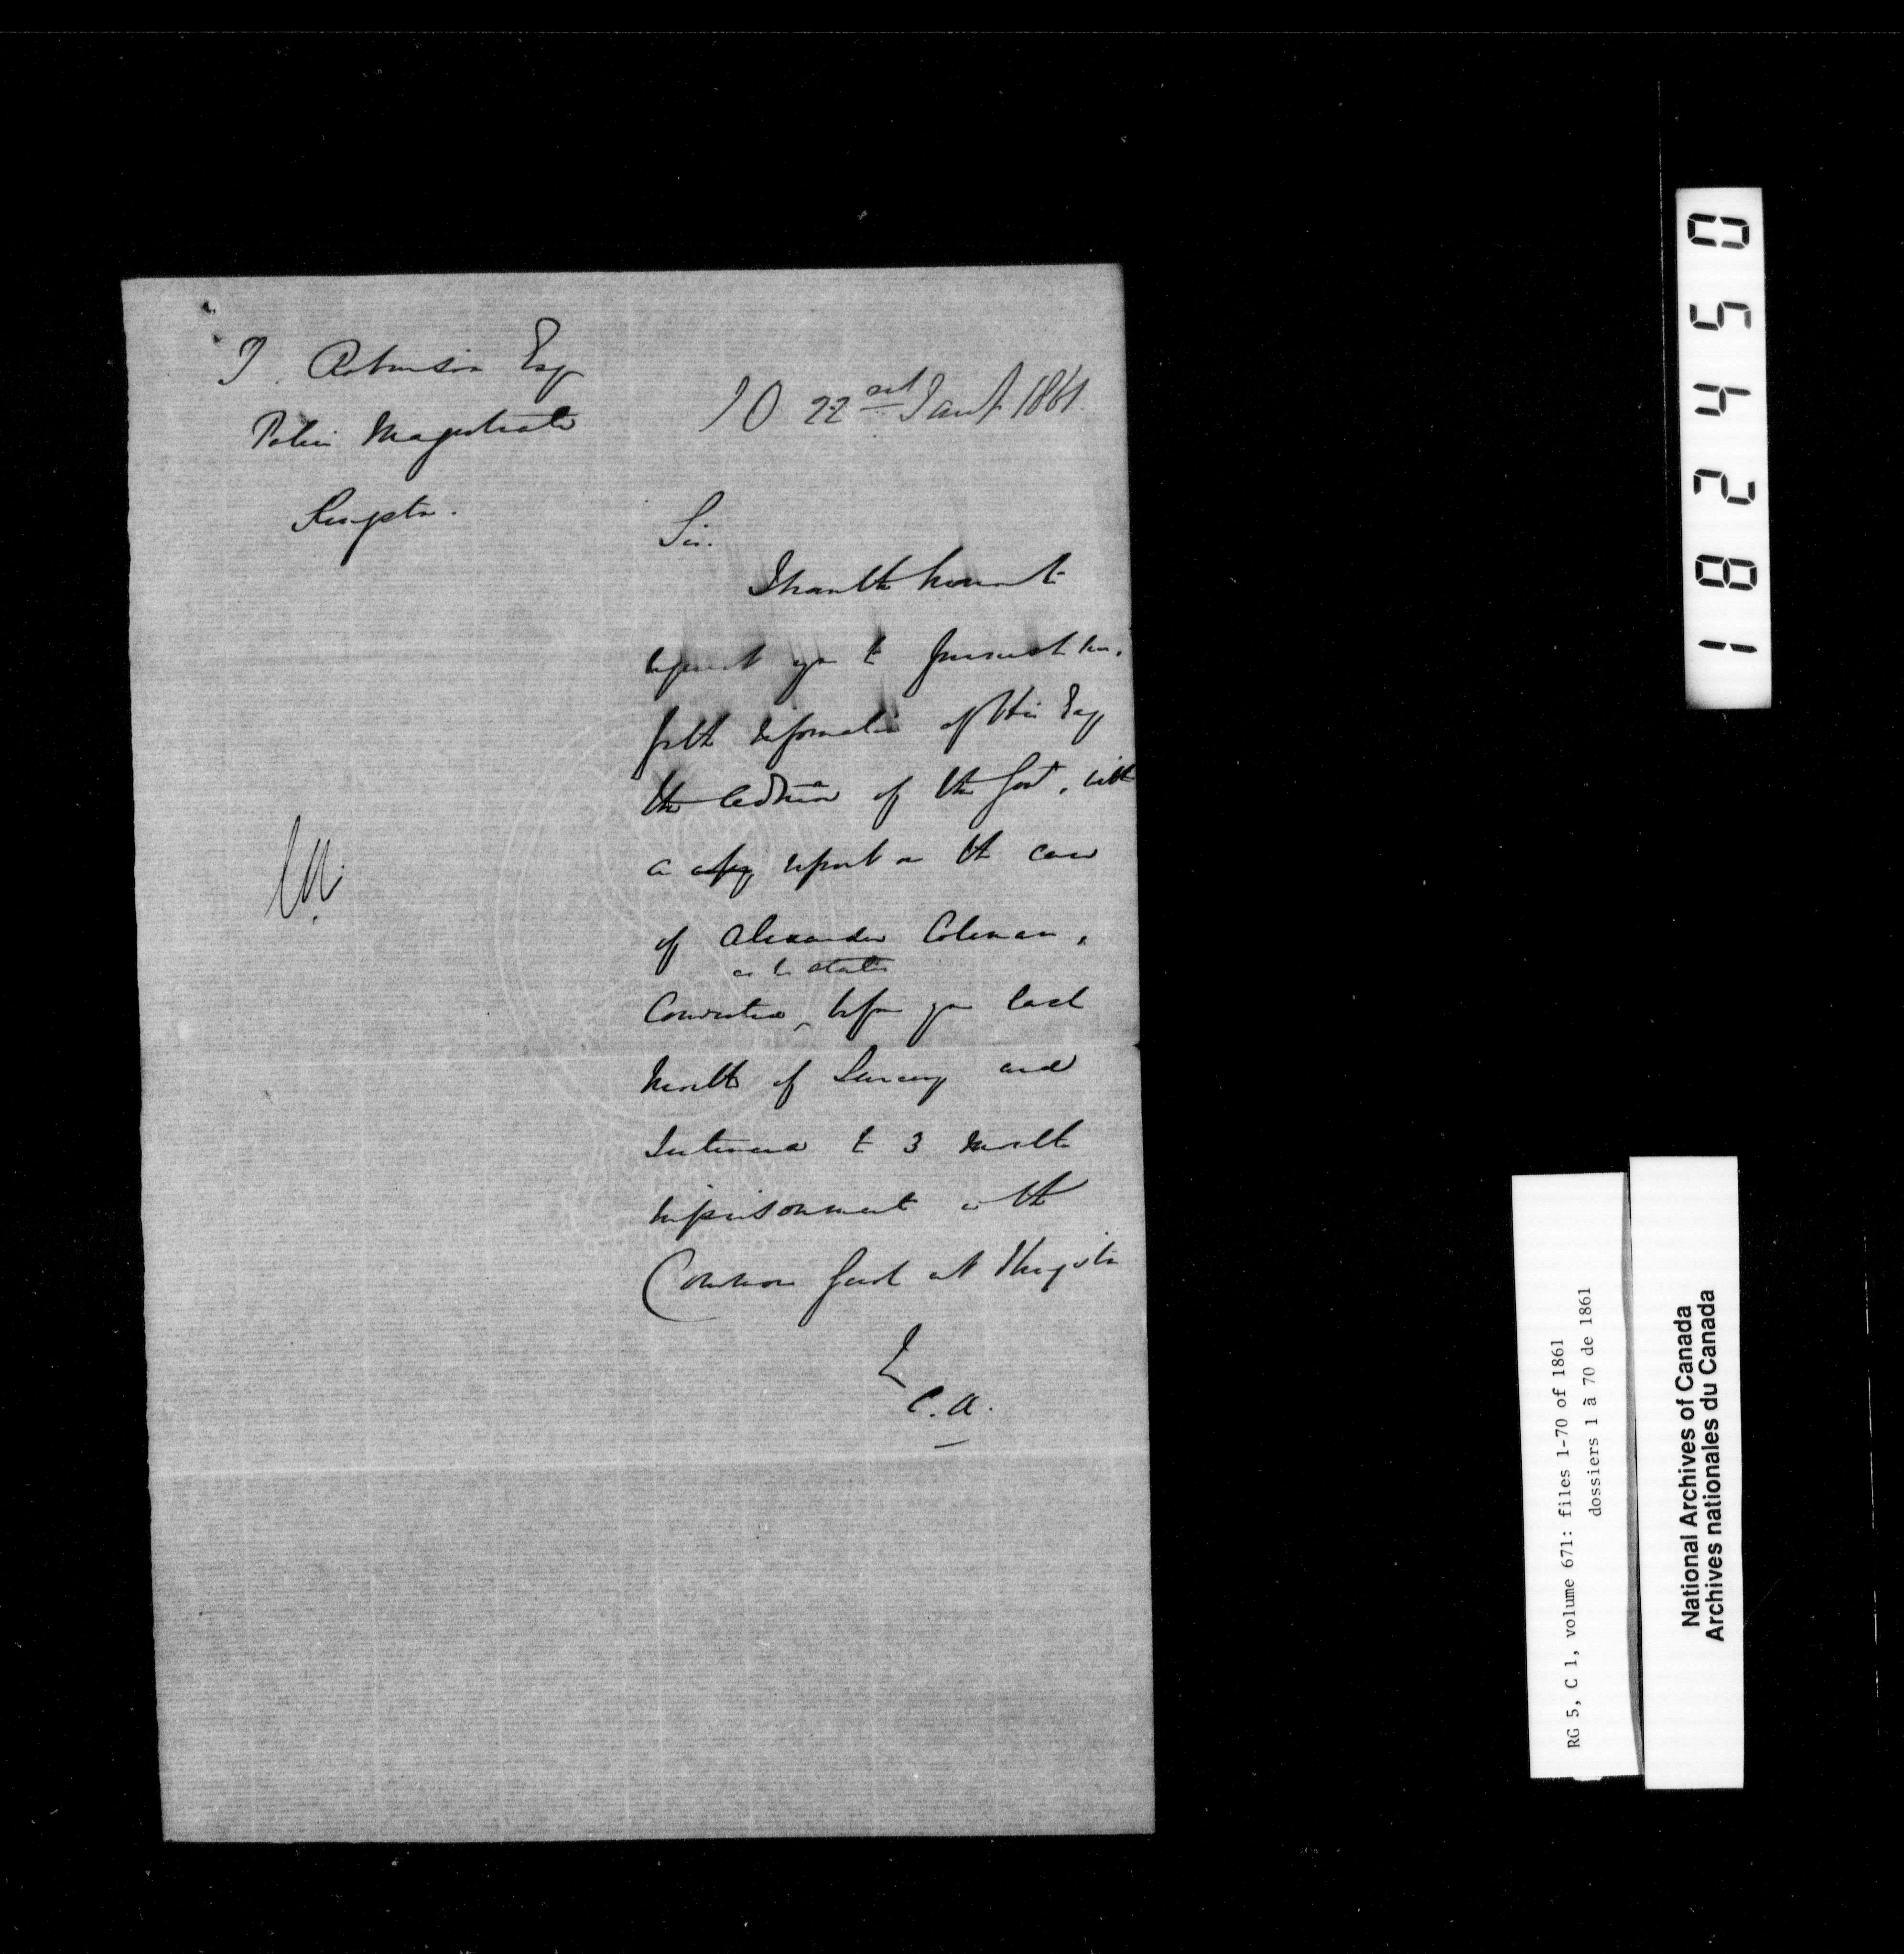 T. Robinson Esq
Police Magistrate
Kingston.
22nd Jany 1861.
Sir.
I have the honor to
request you to furnish me,
for the information of His Exy
the Admr of the Govt, with
a copy report on the case
of Alexander Coleman,
as he states
Convicted before you last
month of Larceny and
Sentenced to 3 months
imprisonment in the
Common Gaol at Kingston
I
C. A.
182450
RG 5, C 1, volume 671: files 1-70 of 1861
dossiers 1 à 70 de 1861
National Archives of Canada
Archives nationales du Canada